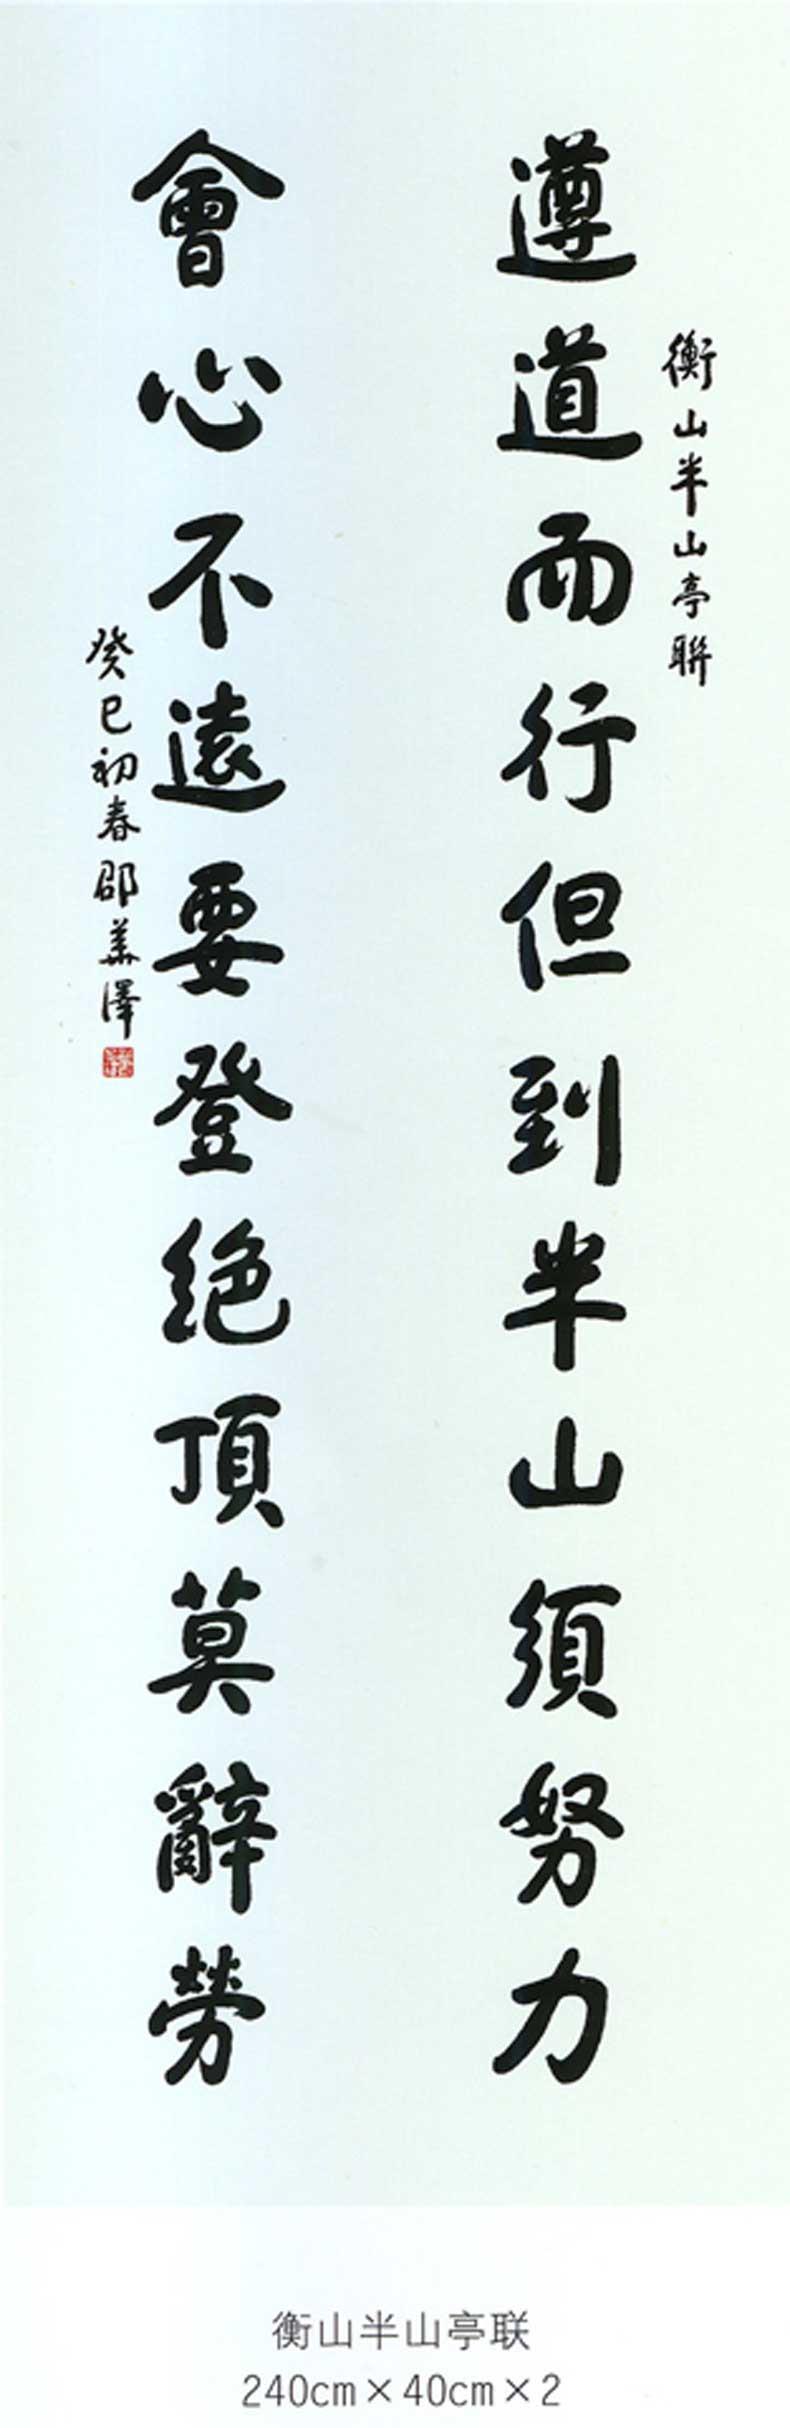 衡山半山亭聯
遵道而行但到半山須努力
會心不遠要登绝頂莫辭勞
癸巳初春邵華澤
衡山半山亭联
240cm×40cm×2